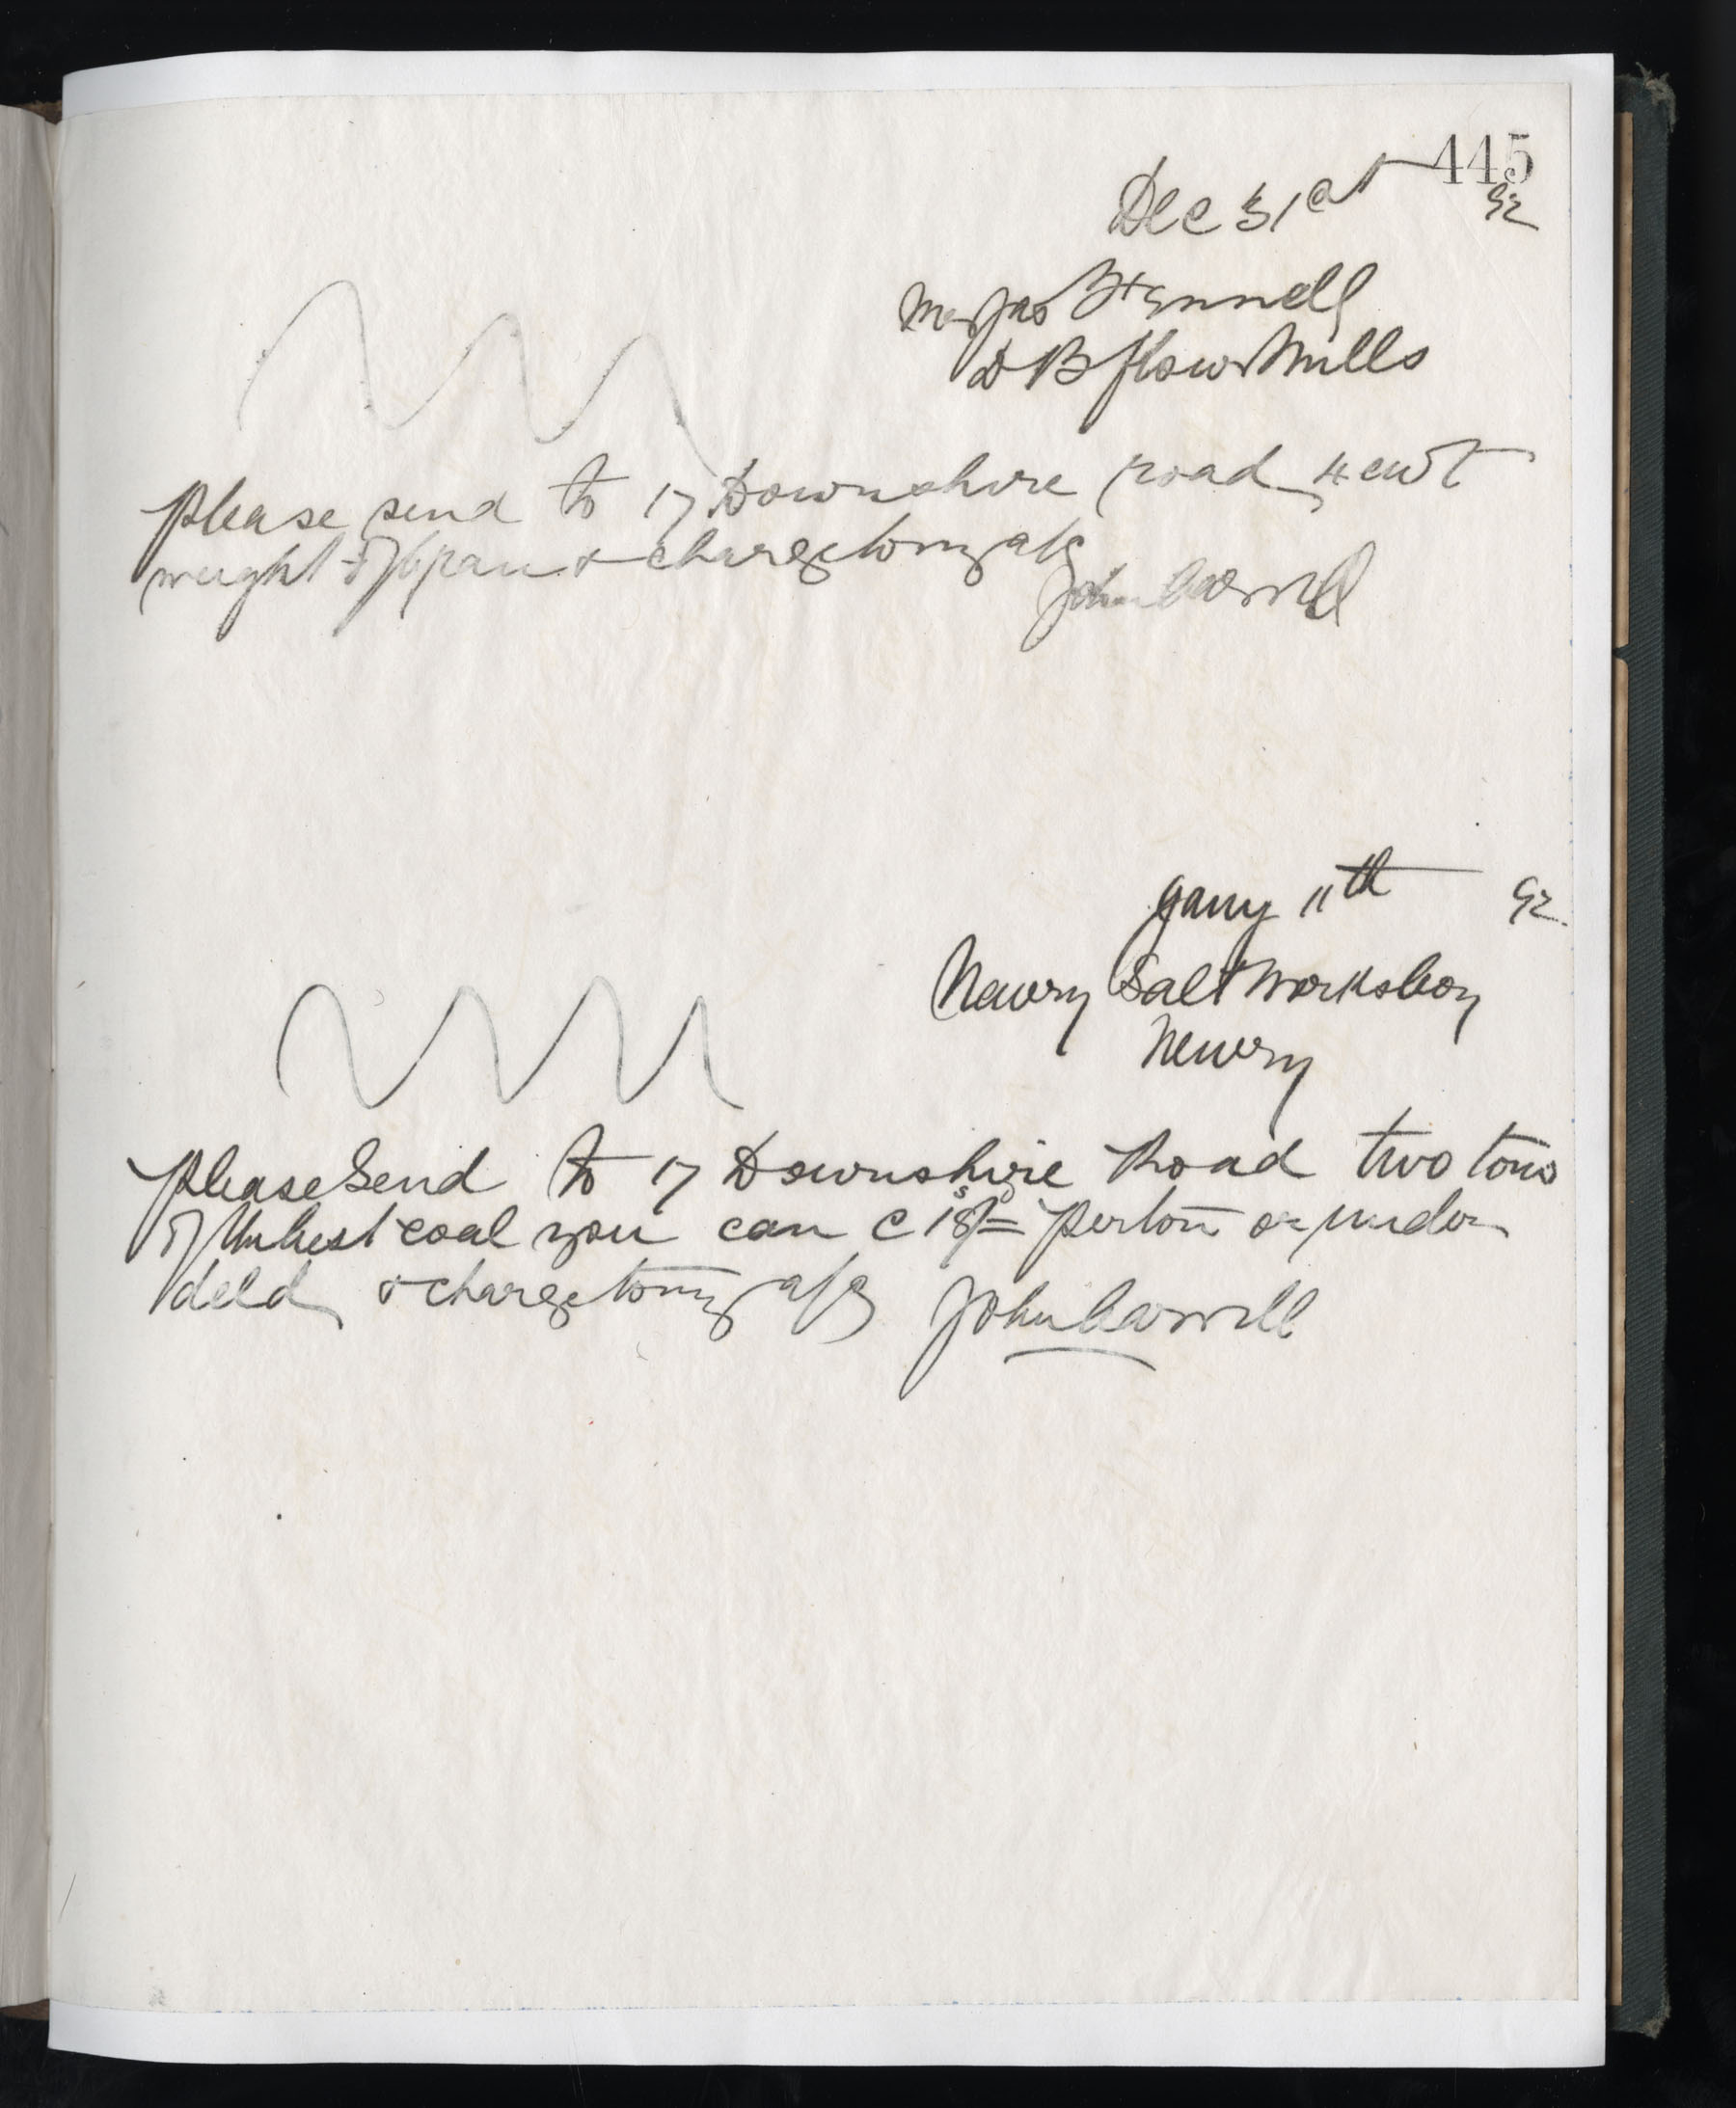 445
Dec 31st 92
Messrs Jas Fennell
D B flour Mills
please send to 17 Downshire road 4 cwt
weight of Bran & charge to my a/c
John Carvill
Jany 11th 92
Newry Salt Works Coy
Newry
please Send to 17 Downshire Road two tons
of the best coal you can @ 18s/= per ton or under
deld & charge to my a/c John Carvill